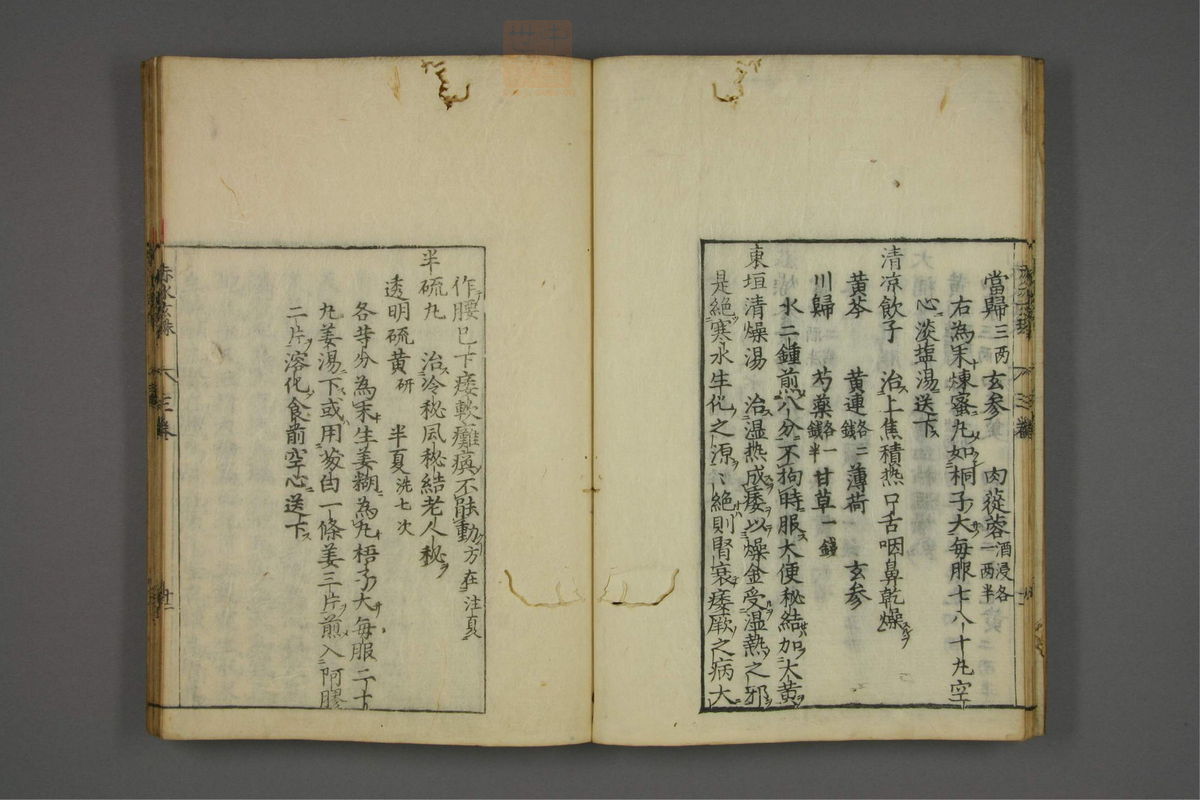 當歸三两 玄参 肉蓯蓉酒浸各一两半
右為末煉蜜丸如桐子大每服七八十丸空
心淡塩湯送下
清凉飲子 治上焦積热口舌咽鼻乾燥
黄芩 黄連各二錢 薄荷 玄参
川歸 芍藥各一錢半 甘草一錢
水二鍾煎八分不拘時服大便秘結加大黄
東垣清燥湯 治温热成痿以燥金受温熱之邪
是絶寒水生化之源〻絶則腎衰痿厥之病大
作腰已下痿軟癱瘓不能動方在注夏
半硫丸 治冷秘風秘結老人秘
透明硫黄研 半夏洗七次
各等分為末生姜糊為丸梧子大每服二十
丸姜湯下或用葱白一條姜三片煎入阿膠
二片溶化食前空心送下
赤水玄珠 三卷